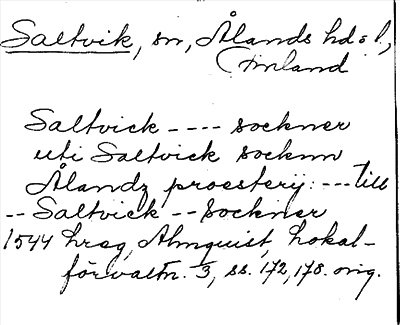 Saltvik, sn, Ålands hd o l,
Finland
Saltvick ---- sockner
uti Saltvick socknn
Ålandz proesterij: --- till
-- Saltvick -- sockner
1544 hreg, Almquist, Lokal-
förvaltn. 3, ss. 172, 178. orig.